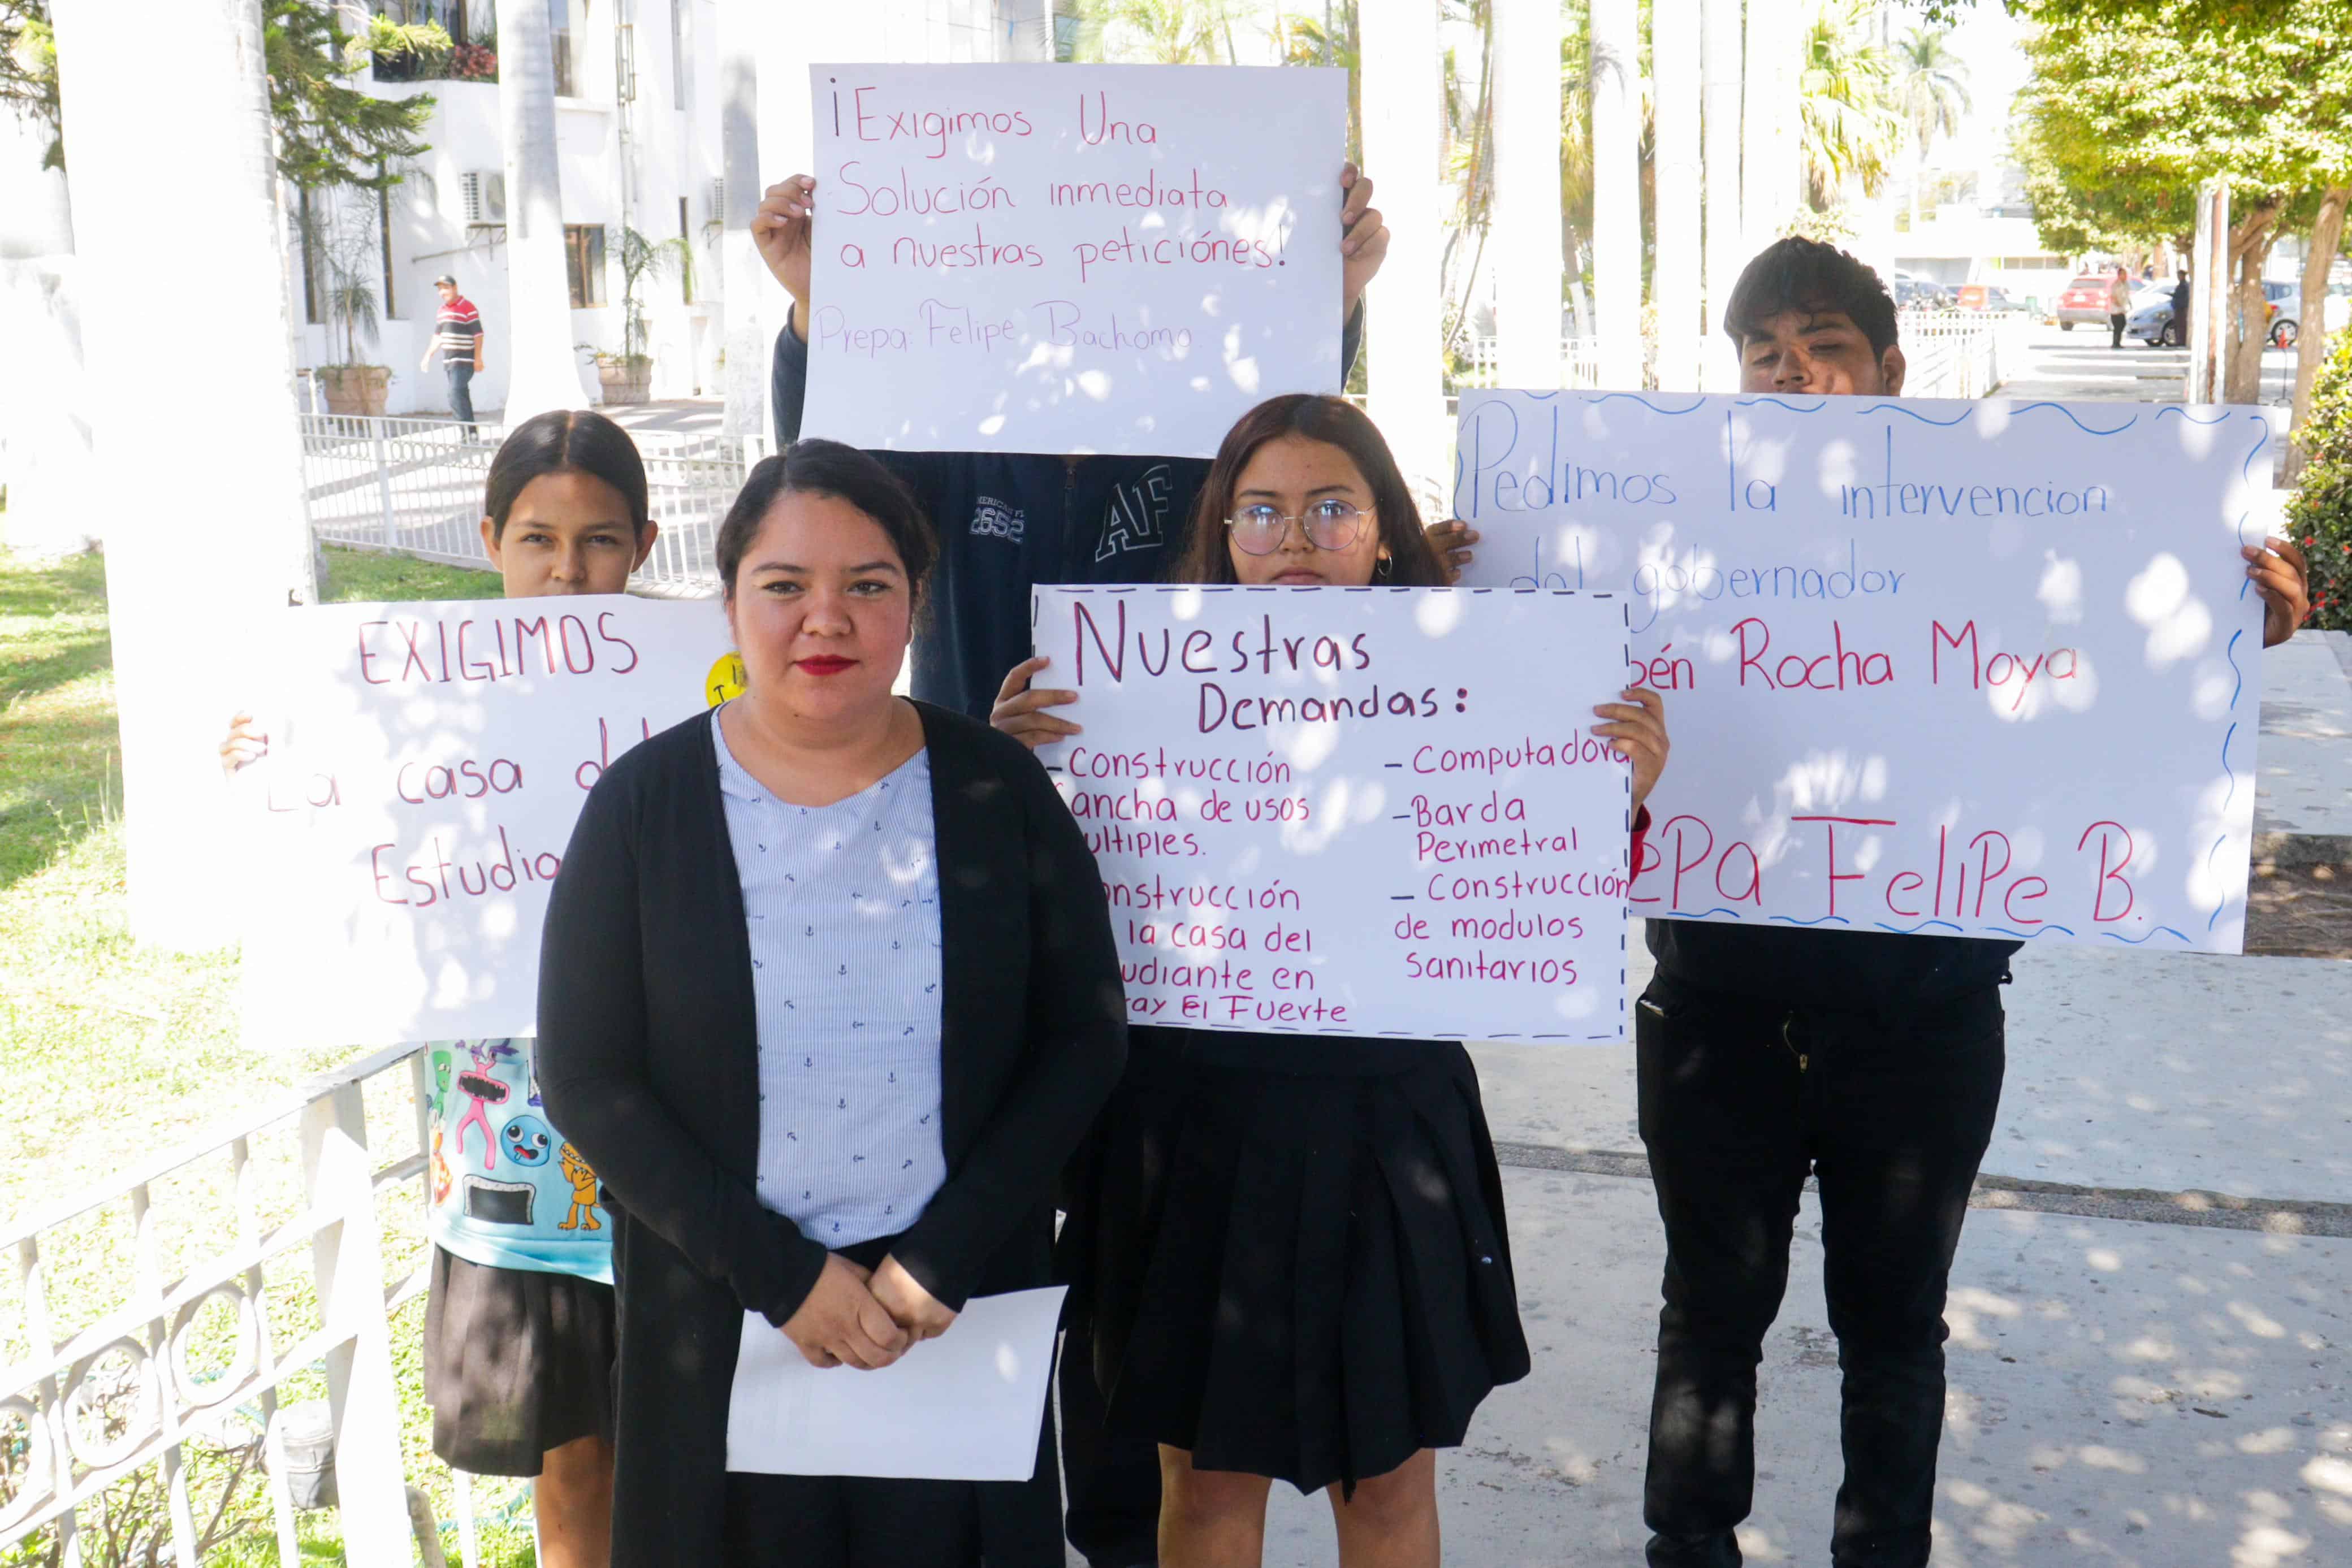 ¡Exigimos Una
Solución inmediata
a nuestras peticiónes!
Prepa: Felipe Bachomo.
2652
AF
EXIGIMOS
La casa del
Estudia
Nuestras
Demandas:
- Construcción
cancha de usos
ultiples.
nstrucción
la casa del
udiante en
ray El Fuerte
- Computadora
- Barda
Perimetral
- Construcción
de modulos
sanitarios
Pedimos la intervencion
del gobernador
bén Rocha Moya
epa Felipe B.